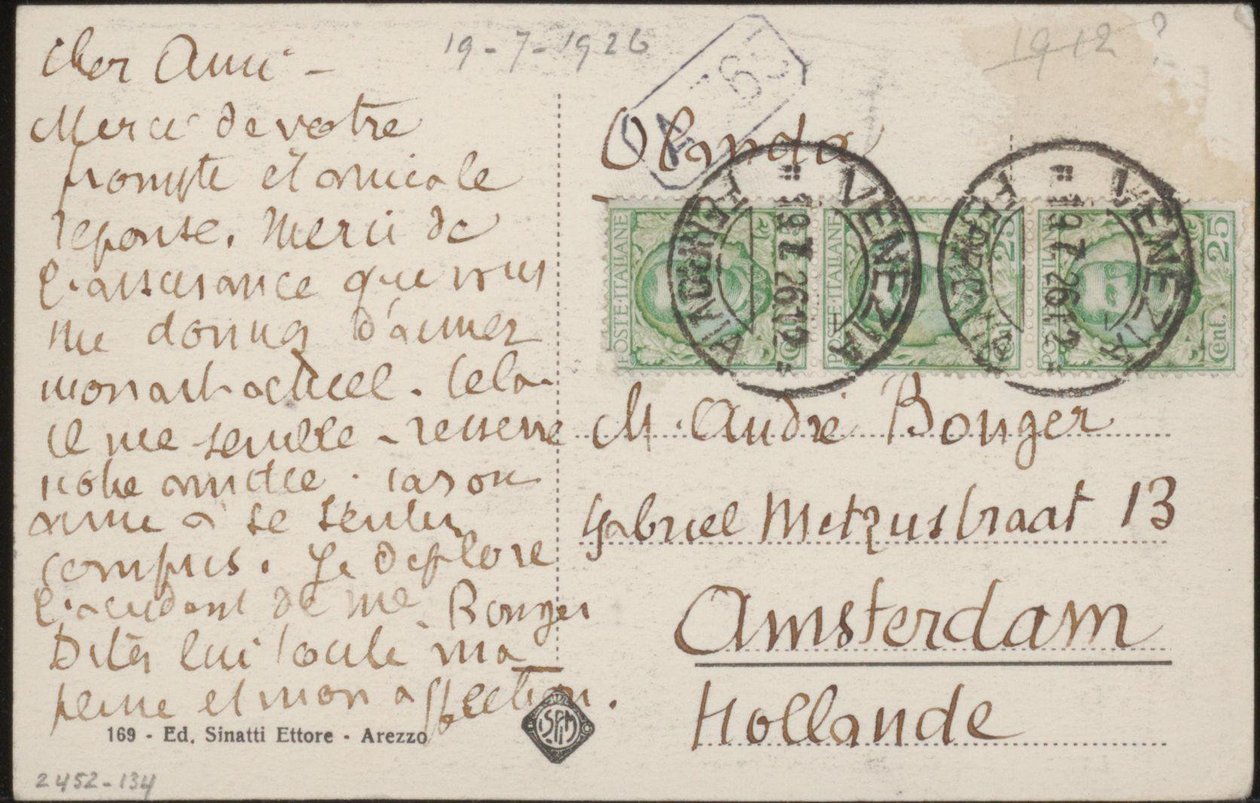 19-7-1926
1912?
Cher Ami -
Merci de votre
prompte et amicale
reponse. Merci de
l'assurance que vous
me donnez d'aimer
mon art actuel. Cela
il me semble - resserre
notre amitié. Car on
aime a se sentir
compris. Je deplore
l'accident de Me Bonger
Dites lui toute ma
peine et mon affection.
169 - Ed. Sinatti Ettore - Arezzo
2452-134
Olanda
POSTE ITALIANE
Cent. 25
POSTE ITALIANE
Cent. 25
VENEZIA
19 7 26 12
VENEZIA
19 7 26 12
M. André Bonger
Gabriel Metzustraat 13
Amsterdam
Hollande